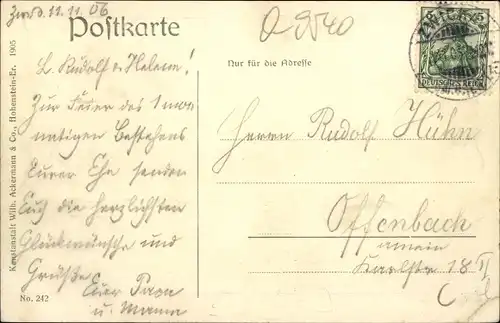 11.11.06
Postkarte
Nur für die Adresse
L. Rudolf u. Helene!
Zur Feier des 1 mon
natigen Bestehens
Eurer Ehe senden
Euch die herzlichsten
Glückwünsche und
Grüße
Euer Papa
u. Mama
Herrn Rudolf Hühn
Offenbach
a main
Karlstr 18 II
DEUTSCHES REICH
Kunstanstalt Wilh. Ackermann & Co., Hohenstein-Er. 1905
No. 242